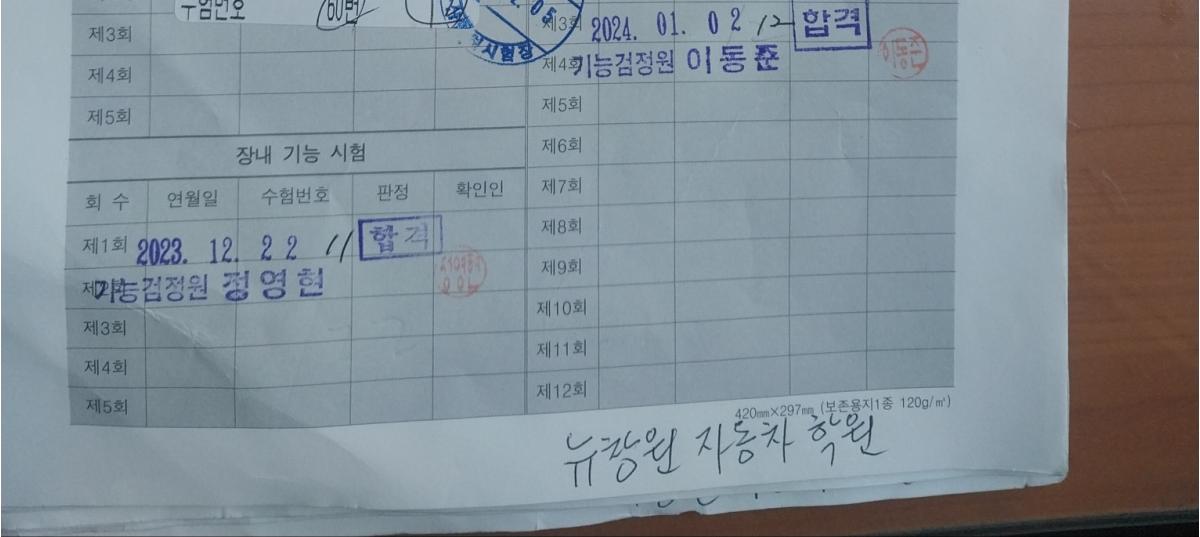 수험번호 60번
제3회
제4회
제5회
시험장
05
장내 기능 시험
회 수 연월일 수험번호 판정 확인인
제1회 2023. 12. 22 11 합격
기능검정원 정영현
제3회
제4회
제5회
제3회 2024. 01. 02 12 합격
제4회 기능검정원 이동준 이동준
제5회
제6회
제7회
제8회
제9회
제10회
제11회
제12회
420㎜×297㎜ (보존용지1종 120g/㎡)
뉴창원 자동차 학원